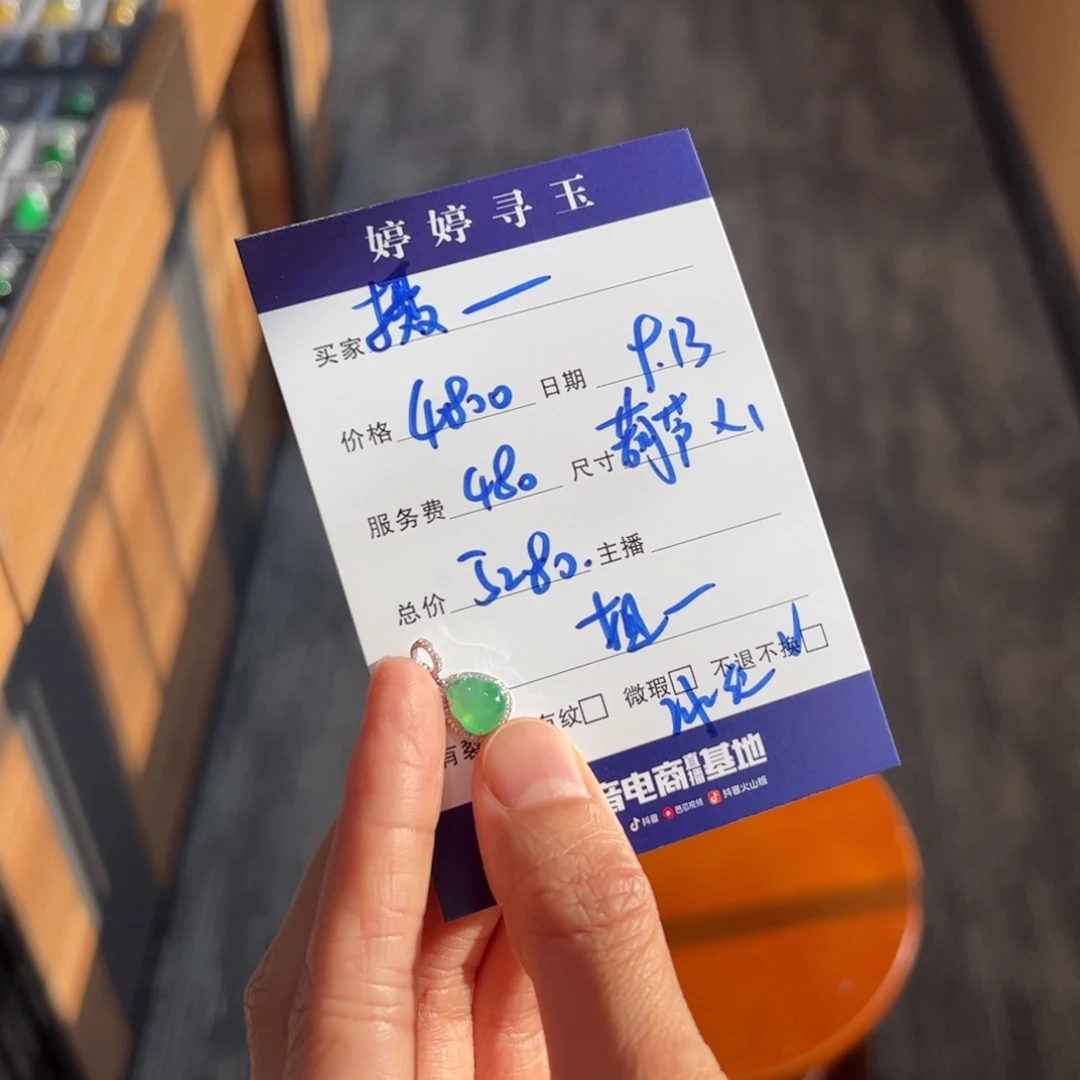 婷婷寻玉
买家 摄一
价格 4800 日期 9.13
服务费 480 尺寸 葫芦人1
总价 5280. 主播
姐一
有裂 有纹 微瑕 不退不换
音电商直播基地
抖音 西瓜视频 抖音火山版